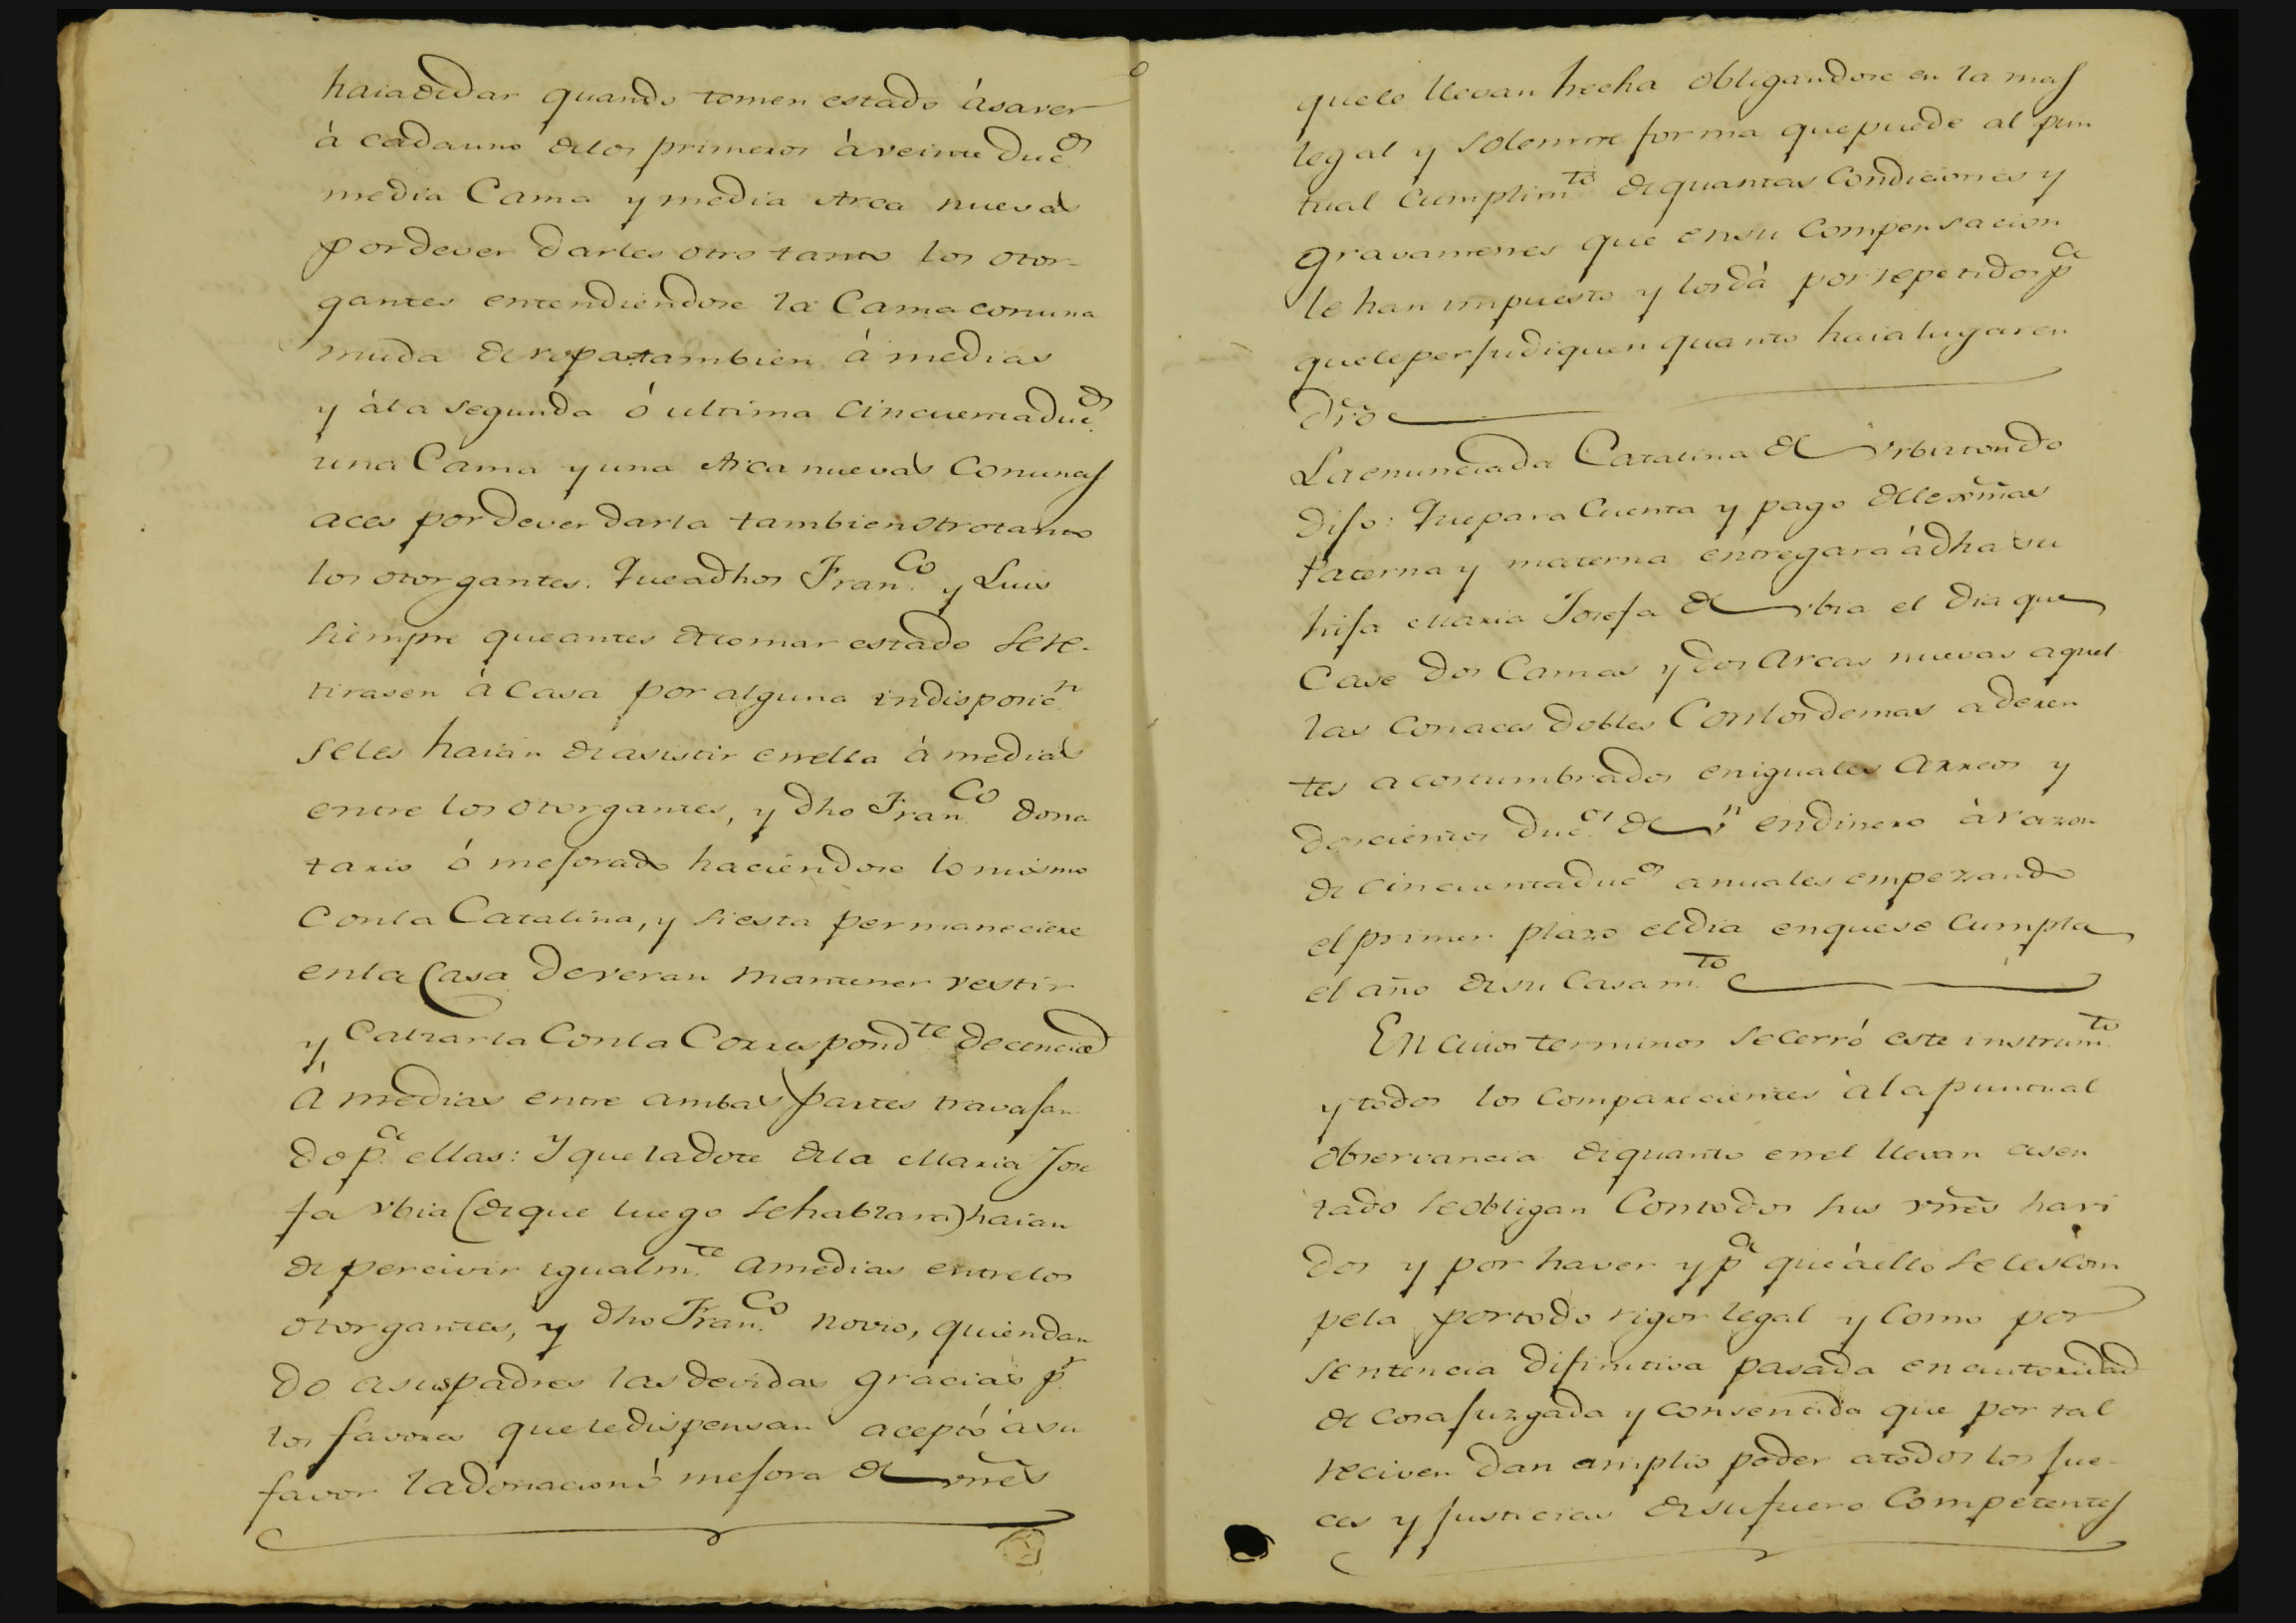 haia de dar quando tomen estado á saver
á cada uno de los primeros á veinte Duc.os
media Cama y media Arca nuevas
por dever darles otro tanto los otor-
gantes entendiendose la Cama con una
muda de ropa tambien á medias
y á la segunda ó ultima cincuenta duc.os
una Cama y una Arca nuevas con unas
aces por dever darla tambien otro tanto
los otorgantes. Que a dhos Fran.co y Luis
siempre que antes de tomar estado se re-
tirasen á casa por alguna indisposic.n
se les haian de asistir en ella á medias
entre los otorgantes, y dho Fran.co dona
tario ó mejorado haciendose lo mismo
con la Catalina, y si esta permaneciere
en la Casa deveran mantener vestir
y Calzarla con la Correspond.te decencia
á medias entre ambas partes travajan
do p.a ellas: Y que la dote de la Maria Jose
fa Vbia (de que luego se hablara) haian
de percivir igualm.te a medias entre los
otorgantes, y dho Fran.co novio, quien dan
do a sus padres las devidas gracias p.r
los favores que le dispensan aceptó á su
favor la donacion ó mejora de vnēs
que le llevan hecha obligandose en la mas
legal y solemne forma que puede al pun
tual cumplim.to de quantas Condiciones y
gravamenes que en su compensacion
le han impuesto y los dá por repetidos p.a
que le perjudiquen quanto haia lugar en
dr̄o
La enunciada Catalina de Vrbiztondo
dijo: Que para Cuenta y pago de lexm̄as
Paterna y materna entregara á dha su
hija Maria Josefa de Vbia el dia que
case dos Camas y dos Arcas nuevas aquel
las con aces dobles con los demas aderen
tes acostumbrados en iguales arreos y
doscientos duc.os de v.n en dinero á razon
de cincuenta duc.os anuales empezando
el primer plazo el dia en que se cumpla
el año de su casam.to
En cuios terminos se cerró este instrum.to
y todos los comparecientes á la puntual
observancia de quanto en el llevan asen
tado se obligan con todos sus vnēs havi
dos y por haver y p.a que á ello se les com
pela por todo rigor legal y como por
sentencia difinitiva pasada en autoridad
de cosa juzgada y consentida que por tal
reciven dan amplio poder a todos los jue-
ces y justicias de su fuero competentes